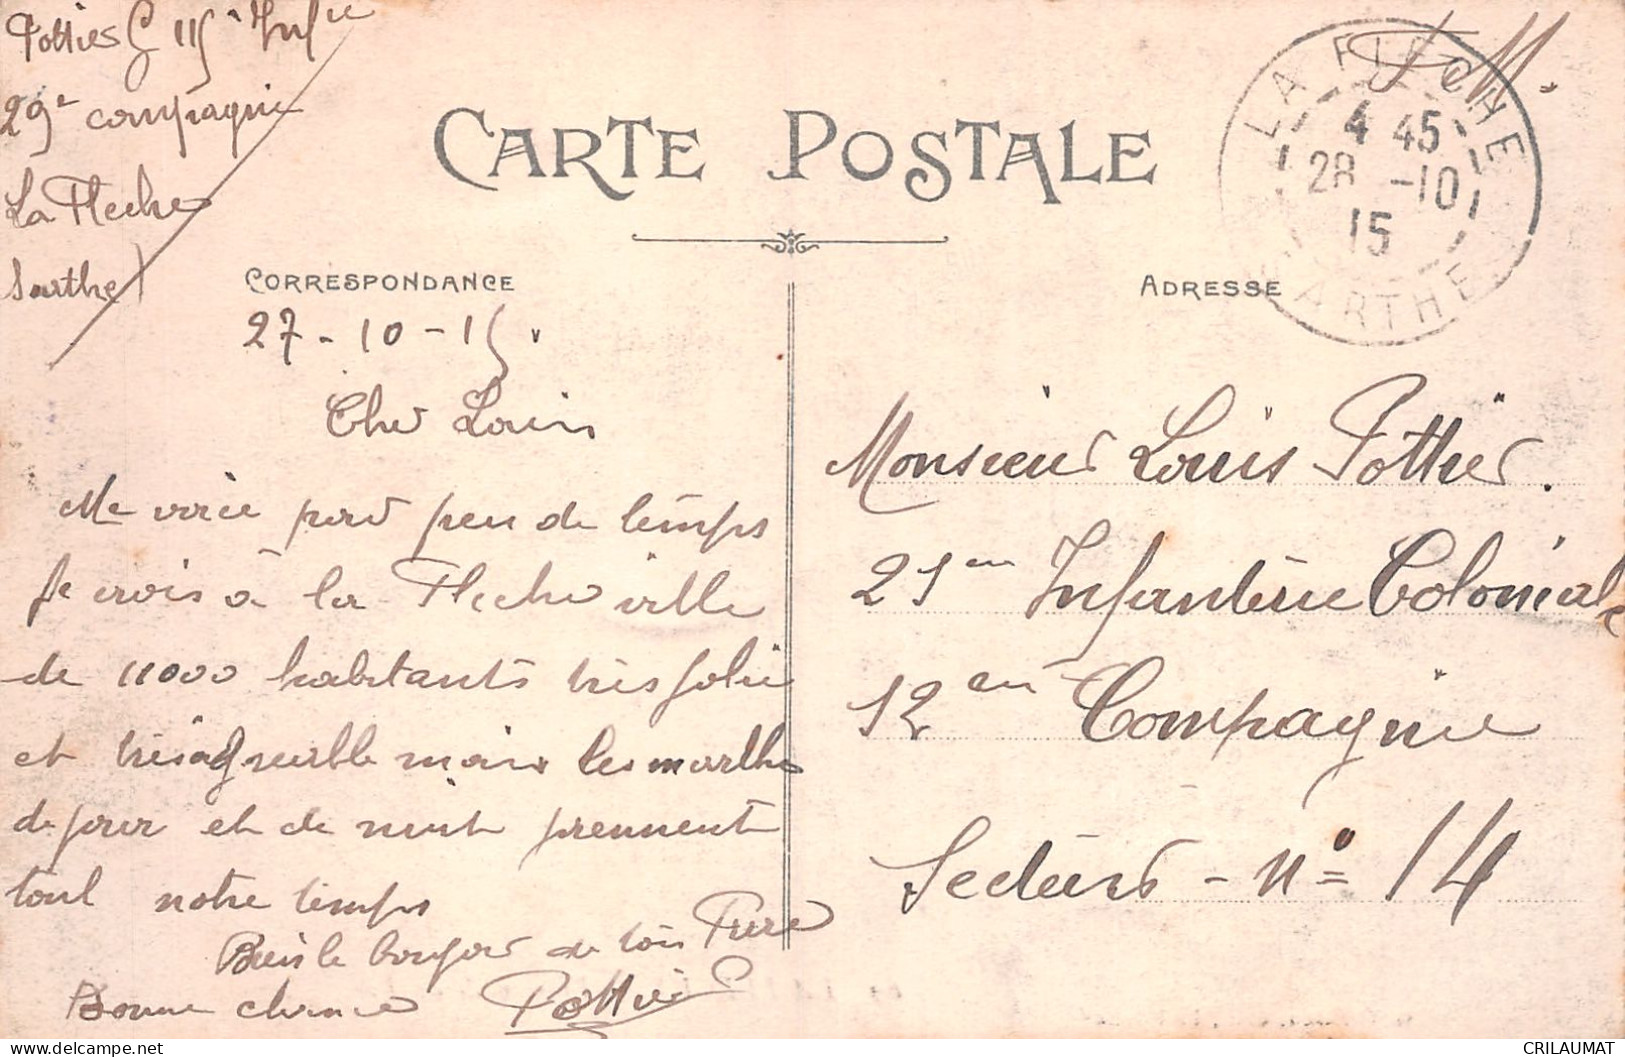 Pottier G 115e Infie
29e compagnie
La Fleche
Sarthe
CARTE POSTALE
F. M.
LA FLECHE
4 45
28 -10
15
SARTHE
CORRESPONDANCE
27-10-15
Cher Louis
Me voice pour peu de temps
Je crois à la Fleche ville
de 11000 habitants très jolie
et très agreable mais les marche
de jour et de nuit prennent
tout notre temps
Bien le bonjour de ton Frere
Bonne chance Pottier
ADRESSE
Monsieur Louis Pottier.
21em Infanterie Coloniale
12em Compagnie
Secteurs - No 14
CRILAUMAT